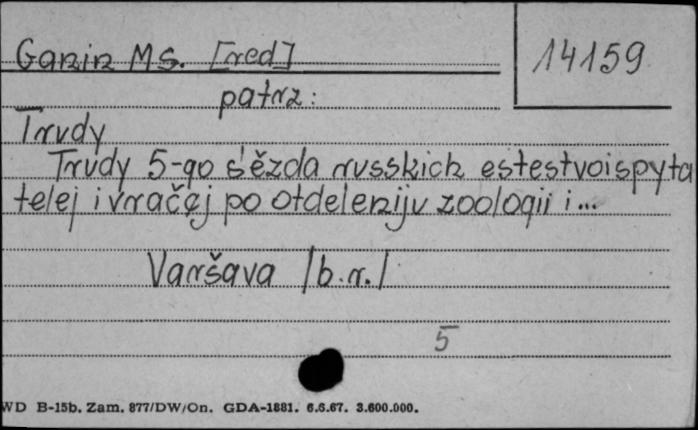 Ganin MS. [red]
14159
patrz:
Trudy
Trudy 5-go s'ězda russkich estestvoispyta
telej i vračej po otdeleniju zoologii i...
Varšava /b.r./
5
WD B-15b. Zam. 877/DW/On. GDA-1881. 6.6.67. 3.600.000.